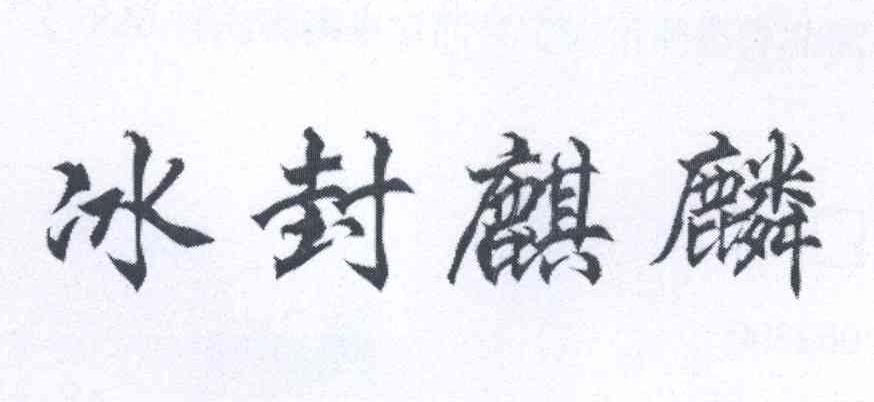 冰封麒麟